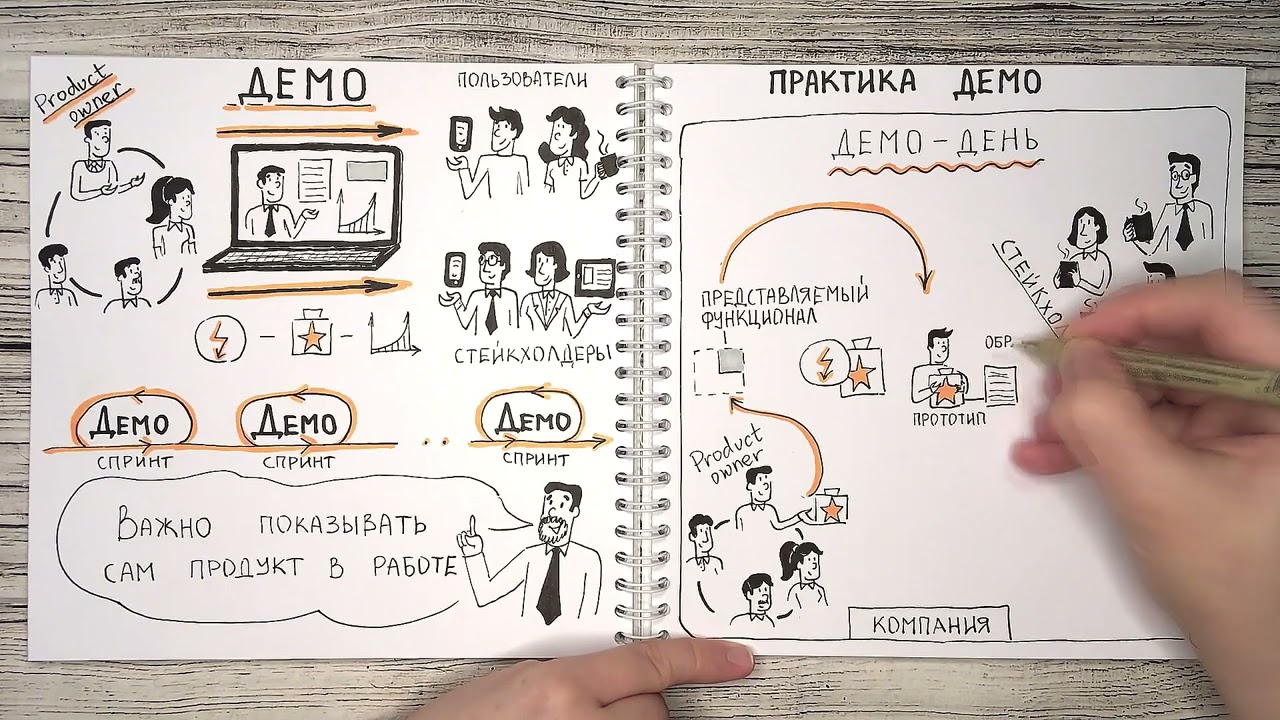 Product
owner
ДЕМО
ПОЛЬЗОВАТЕЛИ
СТЕЙКХОЛДЕРЫ
ДЕМО
СПРИНТ
ДЕМО
СПРИНТ
ДЕМО
СПРИНТ
ВАЖНО ПОКАЗЫВАТЬ
САМ ПРОДУКТ В РАБОТЕ
ПРАКТИКА ДЕМО
ДЕМО-ДЕНЬ
ПРЕДСТАВЛЯЕМЫЙ
ФУНКЦИОНАЛ
ОБР.
ПРОТОТИП
Product
owner
КОМПАНИЯ